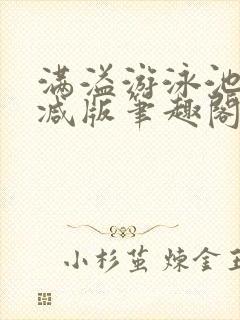 满溢游泳池
减版笔趣阁
小杉茧 炼金王